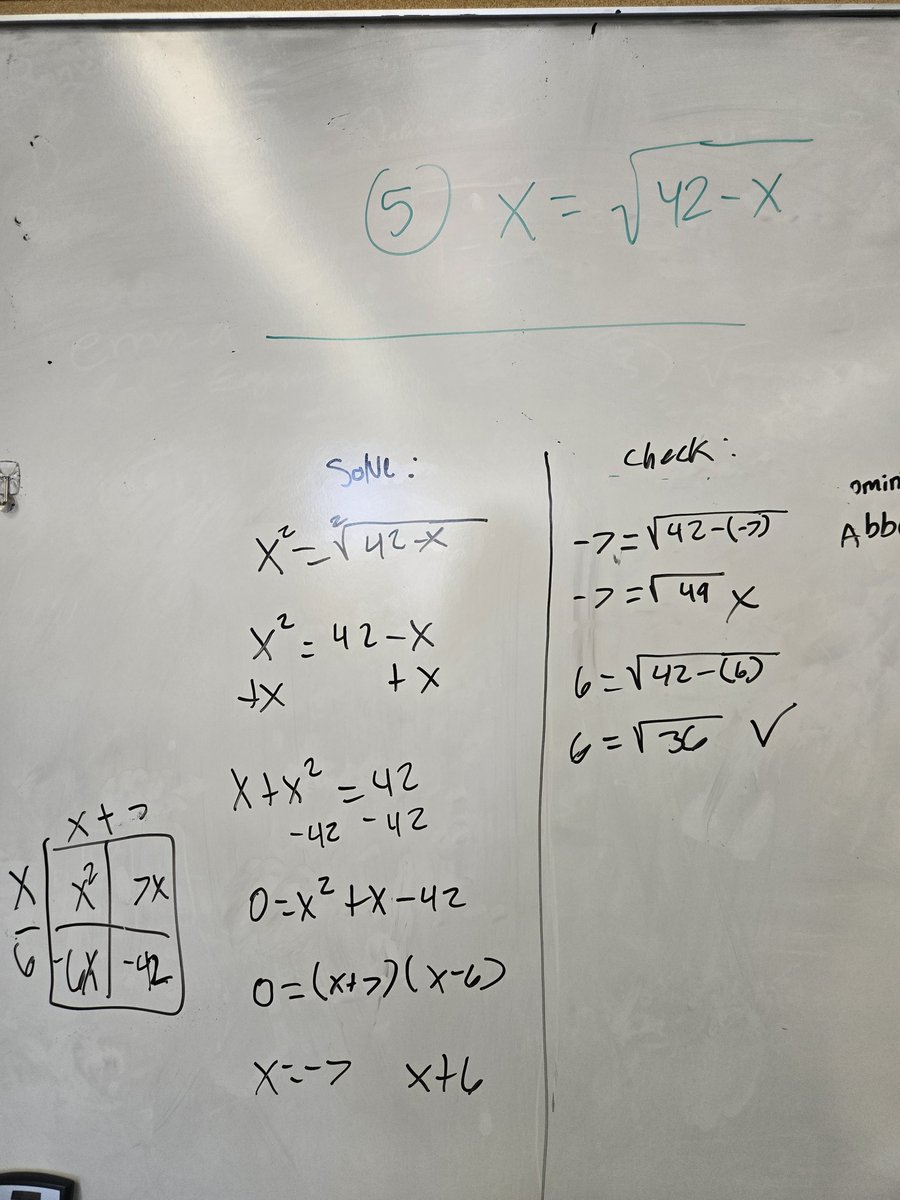 ⑤ X = √42-X
Solve:
X² = ²√42-X
X² = 42-X
+X +X
X+X² = 42
-42 -42
0=X²+X-42
0=(X+7)(X-6)
X=-7 X+6
X+7
X X² 7X
- 6 -6X -42
Check:
-7=√42-(-7)
-7=√49 X
6=√42-(6)
6=√36 ✓